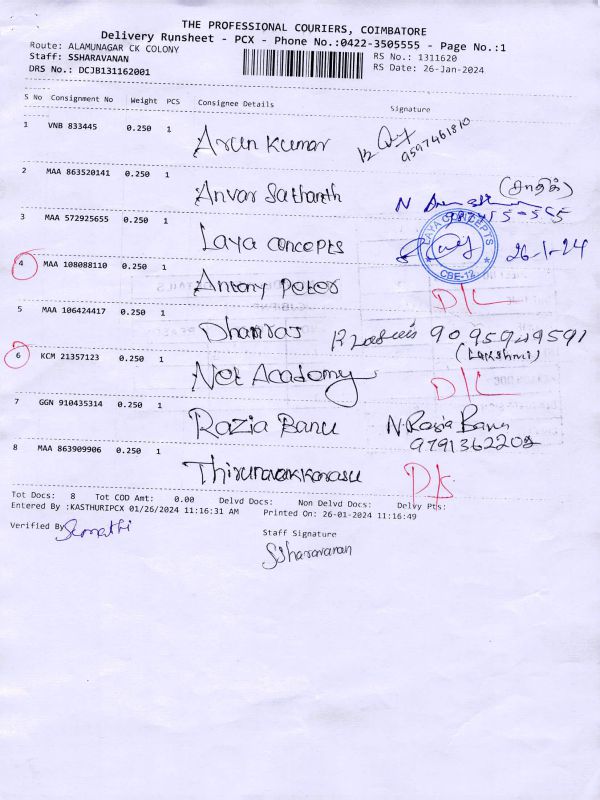 THE PROFESSIONAL COURIERS, COIMBATORE
Delivery Runsheet - PCX - Phone No.:0422-3505555 - Page No.:1
Route: ALAMUNAGAR CK COLONY
RS No.: 1311620
Staff: SSHARAVANAN
RS Date: 26-Jan-2024
DRS No.: DCJB131162001
S No Consignment No Weight PCS Consignee Details Signature
1 VNB 833445 0.250 1 Arun Kumar 9597461810
2 MAA 863520141 0.250 1 Anvar Sathanth (சாதிக்)
3 MAA 572925655 0.250 1 Laya concepts LAYA CONCEPTS CBE-12 26-1-24
4 MAA 108088110 0.250 1 Antony Peter D/L
5 MAA 106424417 0.250 1 Dhanraj 9095949591
(Lakshmi)
6 KCM 21357123 0.250 1 Net Academy D/L
7 GGN 910435314 0.250 1 Razia Banu N. Rasia Banu
9791362208
8 MAA 863909906 0.250 1 Thirunavakkarasu D/L
Tot Docs: 8 Tot COD Amt: 0.00 Delvd Docs: Non Delvd Docs: Delvy Pts:
Entered By :KASTHURIPCX 01/26/2024 11:16:31 AM Printed On: 26-01-2024 11:16:49
Verified By
Staff Signature
SSharavanan